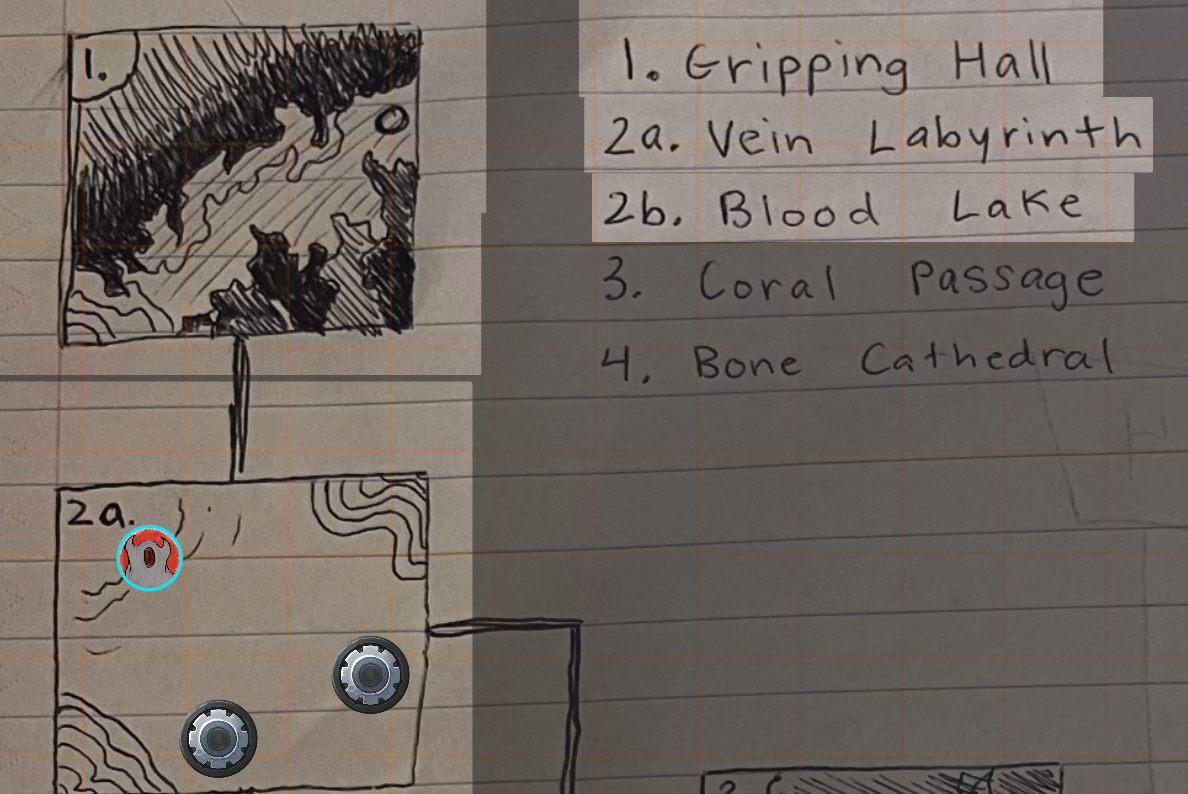 1.
1. Gripping Hall
2a. Vein Labyrinth
2b. Blood Lake
3. Coral Passage
4. Bone Cathedral
2a.